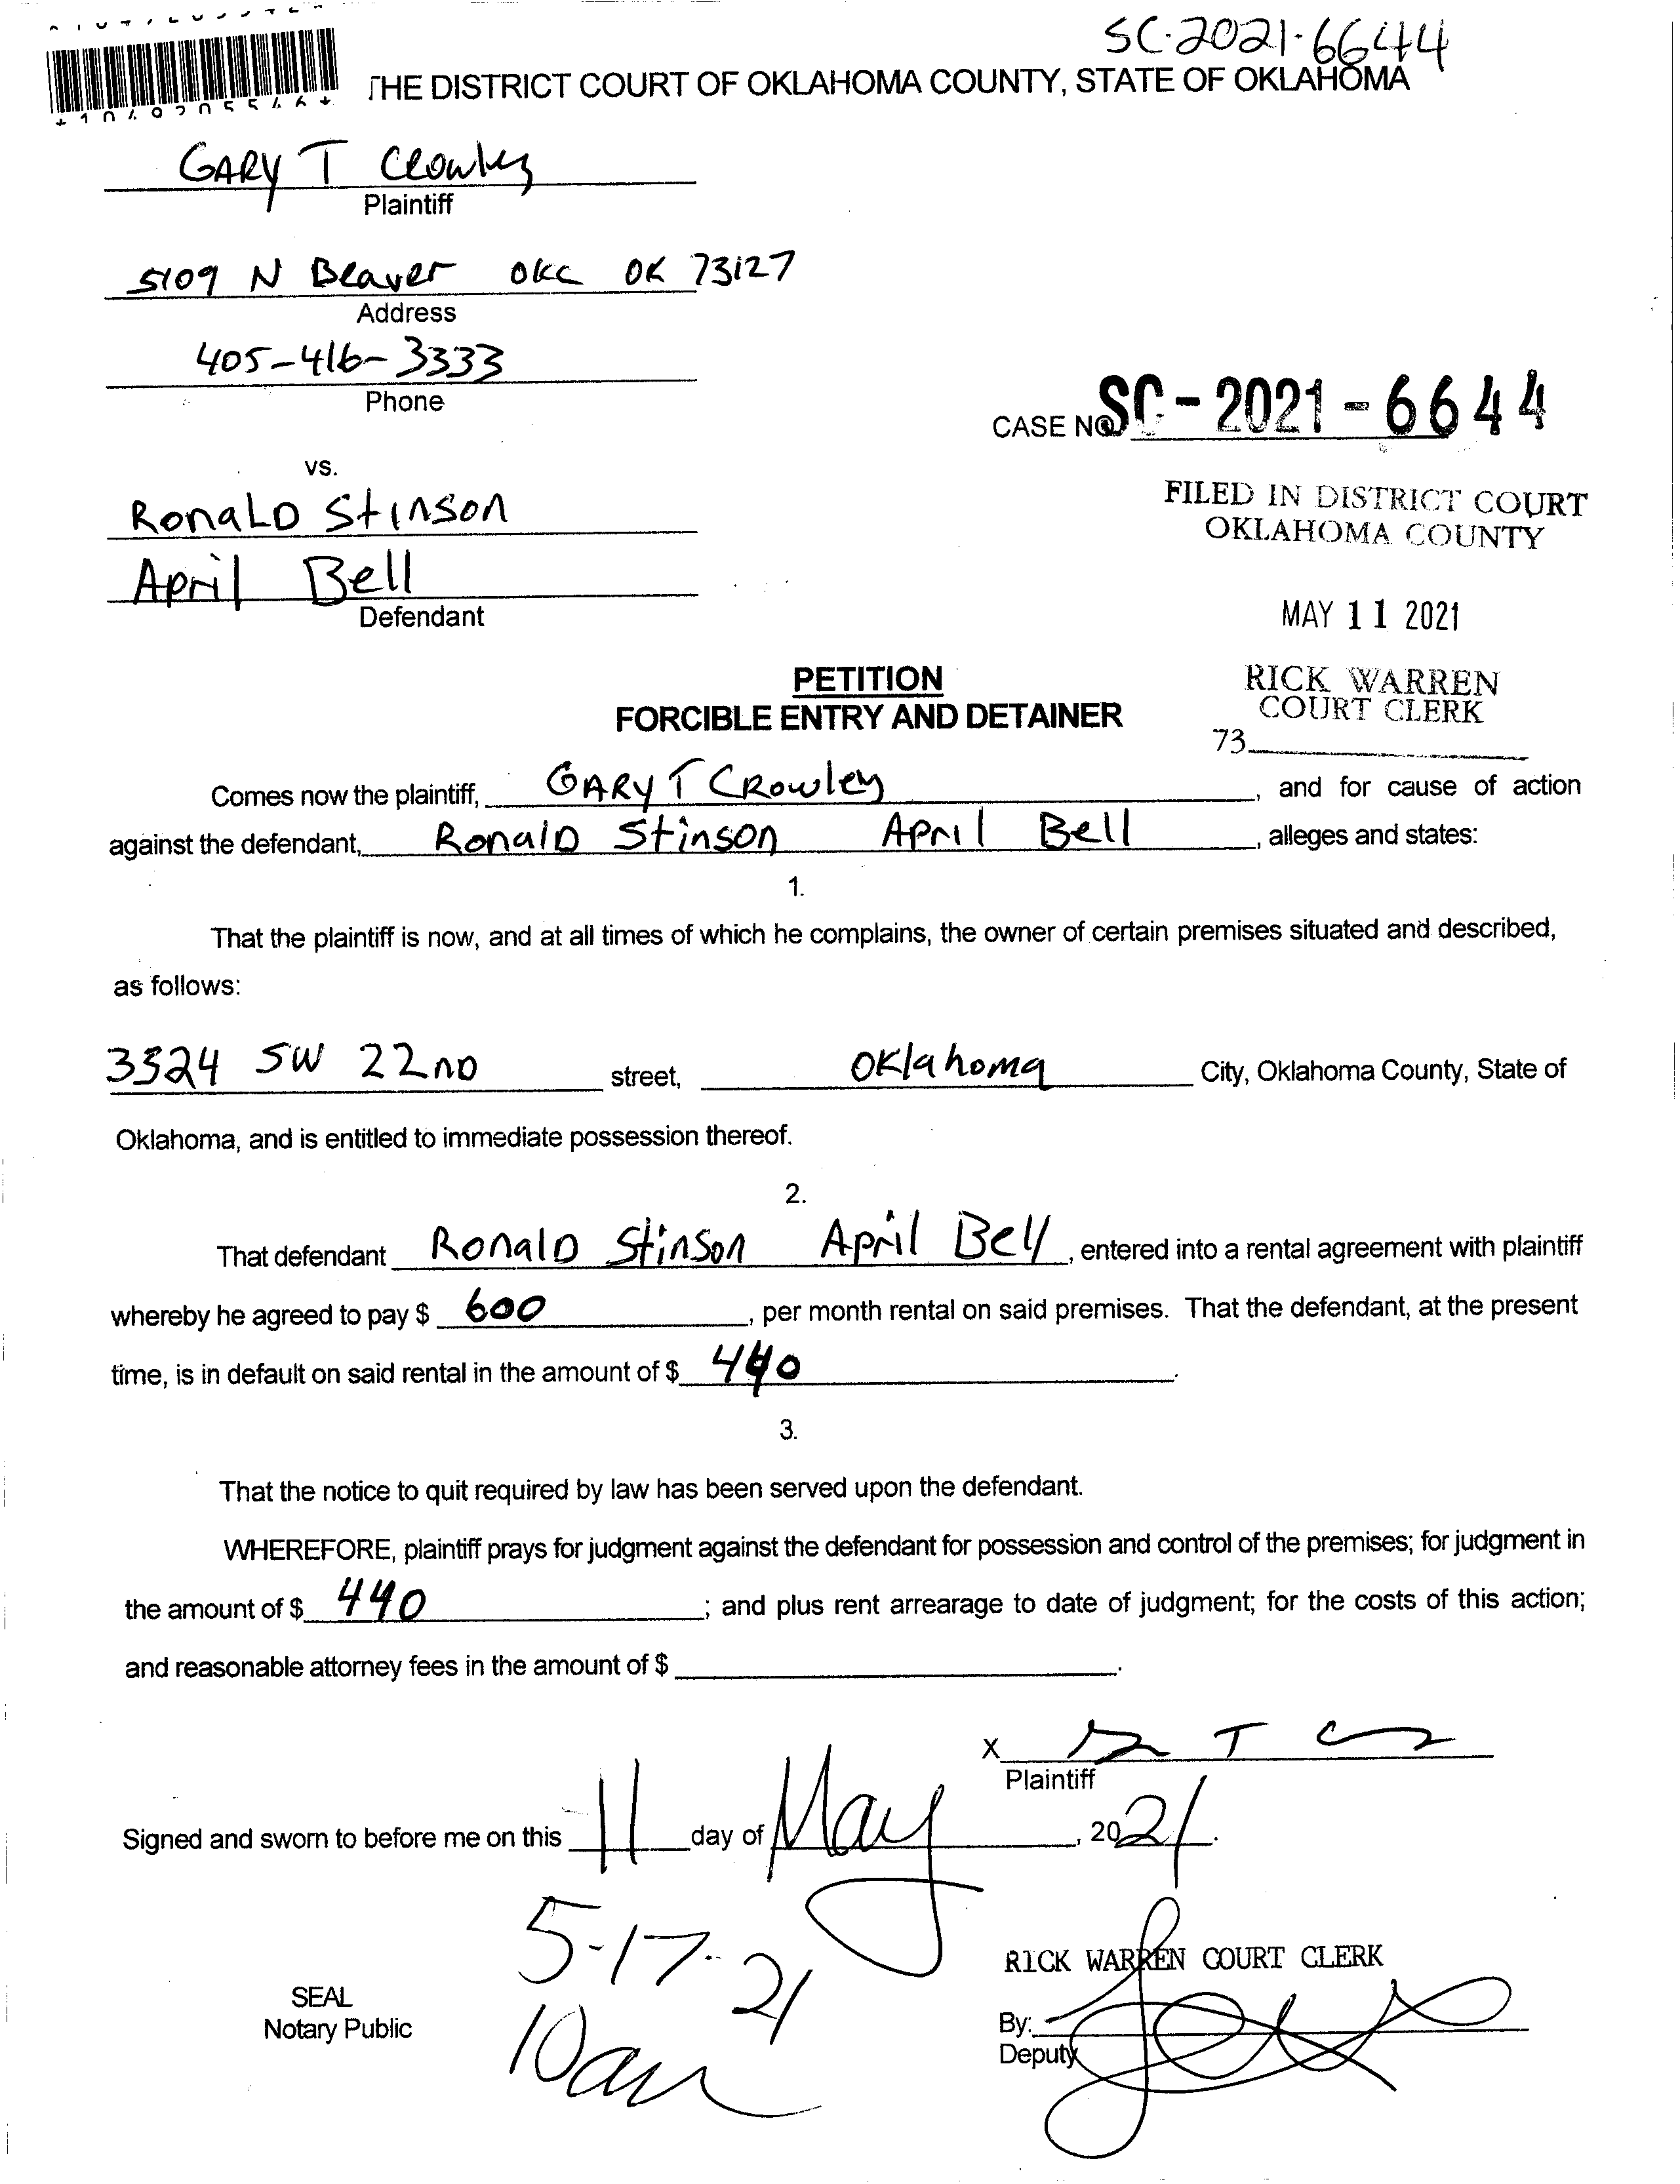 SC-2021-6644
THE DISTRICT COURT OF OKLAHOMA COUNTY, STATE OF OKLAHOMA
GARY T CROWLEY
Plaintiff
5109 N Beaver OKC OK 73127
Address
405-416-3333
Phone
CASE NO. SC-2021-6644
vs.
RonaLD Stinson
April Bell
Defendant
FILED IN DISTRICT COURT
OKLAHOMA COUNTY
MAY 11 2021
RICK WARREN
COURT CLERK
73
PETITION
FORCIBLE ENTRY AND DETAINER
Comes now the plaintiff, GARY T CROWley, and for cause of action
against the defendant, RonalD Stinson April Bell, alleges and states:
1.
That the plaintiff is now, and at all times of which he complains, the owner of certain premises situated and described,
as follows:
3324 SW 22ND street, Oklahoma City, Oklahoma County, State of
Oklahoma, and is entitled to immediate possession thereof.
2.
That defendant RonalD Stinson April Bell, entered into a rental agreement with plaintiff
whereby he agreed to pay $ 600, per month rental on said premises. That the defendant, at the present
time, is in default on said rental in the amount of $ 440.
3.
That the notice to quit required by law has been served upon the defendant.
WHEREFORE, plaintiff prays for judgment against the defendant for possession and control of the premises; for judgment in
the amount of $ 440; and plus rent arrearage to date of judgment; for the costs of this action;
and reasonable attorney fees in the amount of $ .
X
Plaintiff
Signed and sworn to before me on this 11 day of May, 2021.
5-17-21
10am
SEAL
Notary Public
RICK WARREN COURT CLERK
By:
Deputy